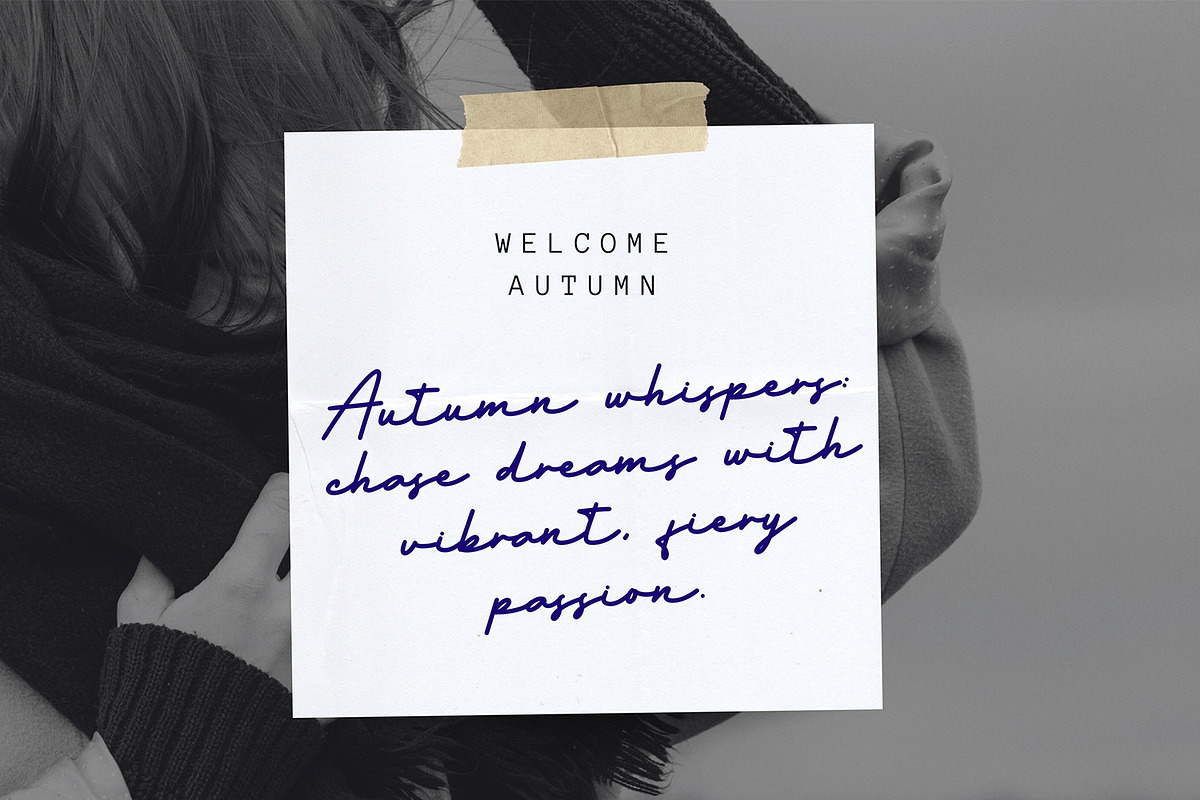 WELCOME
AUTUMN
Autumn whispers:
chase dreams with
vibrant, fiery
passion.